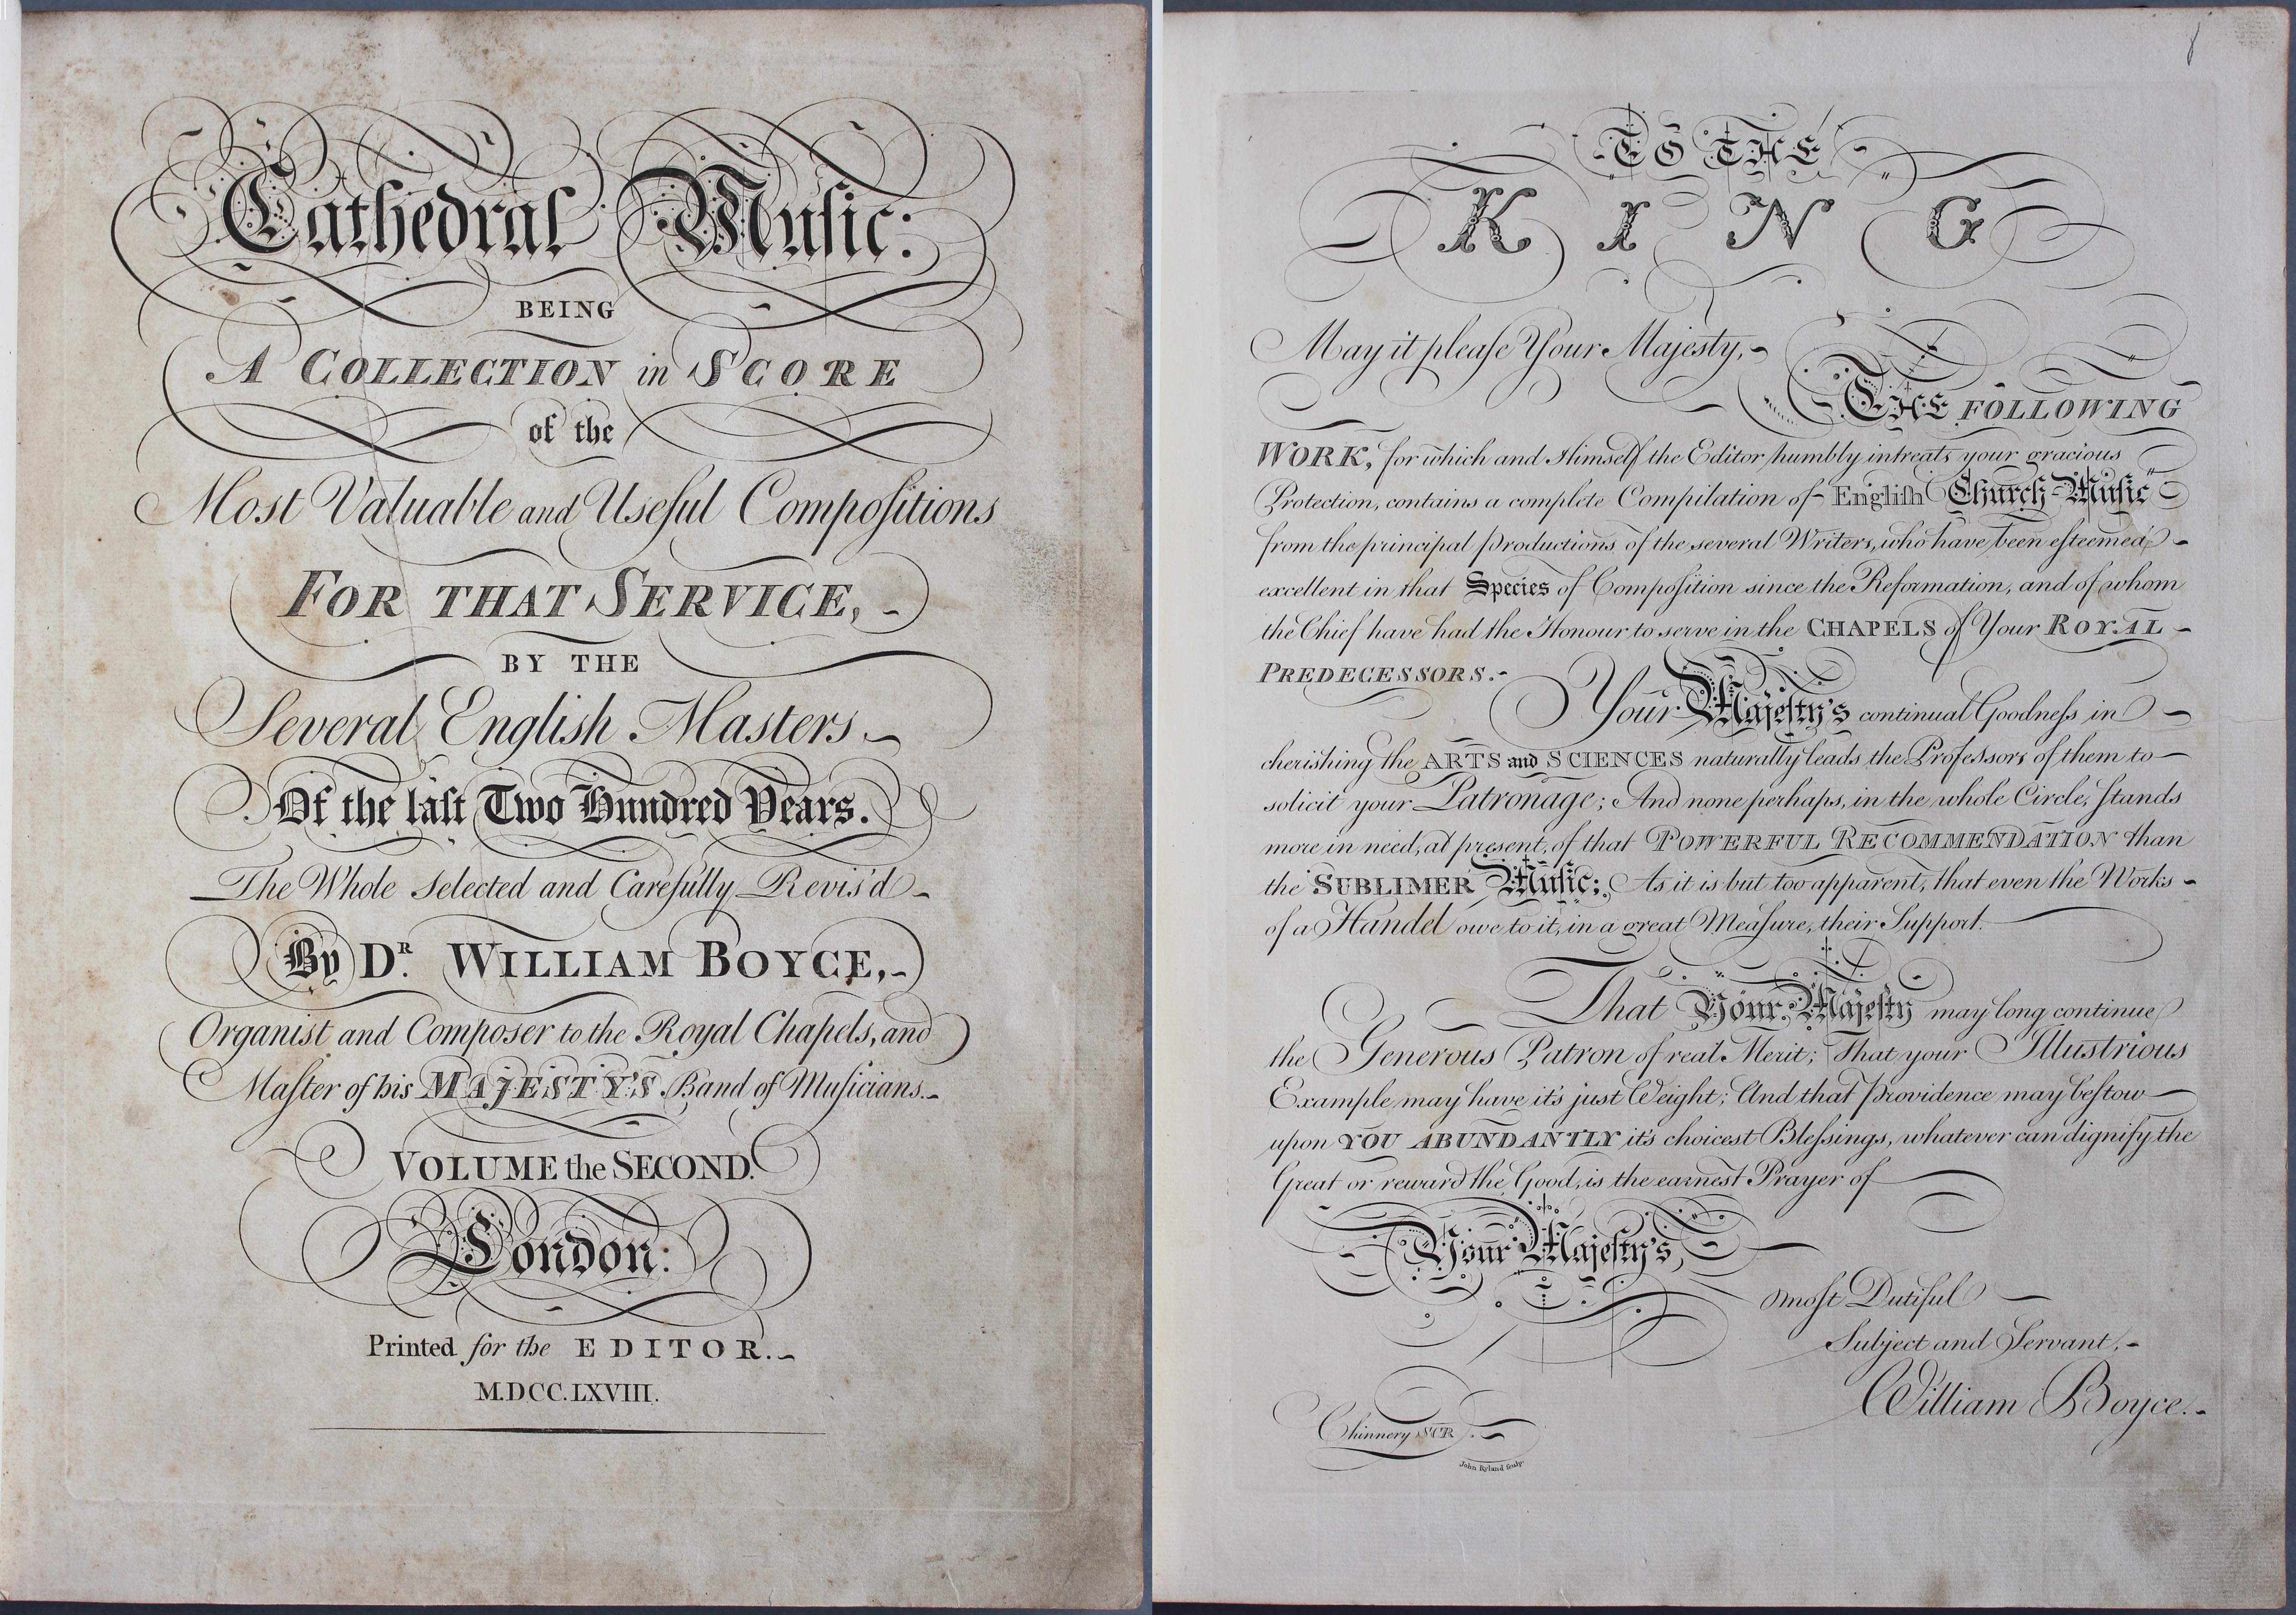 Cathedral Muſic:
BEING
A COLLECTION in SCORE
of the
Most Valuable and Useful Compoſitions
FOR THAT SERVICE,
BY THE
Several English Masters
Of the laſt Two Hundred Years.
The Whole Selected and Carefully Revis'd
By Dr. WILLIAM BOYCE,
Organist and Composer to the Royal Chapels, and
Maſter of his MAJESTY'S Band of Muſicians.
VOLUME the SECOND.
London:
Printed for the EDITOR.
M.DCC.LXVIII.
TO THE
KING
May it pleaſe Your Majesty,
THE FOLLOWING
WORK, for which and Himself the Editor humbly intreats your gracious
Protection, contains a complete Compilation of Engliſh Church-Muſic
from the principal productions of the several Writers, who have been eſteemed
excellent in that Species of Compoſition since the Reformation, and of whom
the Chief have had the Honour to serve in the CHAPELS of Your ROYAL
PREDECESSORS.
Your Majeſty's continual Goodneſs in
cherishing the ARTS and SCIENCES naturally leads the Profeſsors of them to
solicit your Patronage; And none perhaps, in the whole Circle, ſtands
more in need, at present, of that POWERFUL RECOMMENDATION than
the SUBLIMER Muſic; As it is but too apparent, that even the Works
of a Handel owe to it, in a great Meaſure, their Support.
That Your Majeſty may long continue
the Generous Patron of real Merit; That your Illustrious
Example may have it's just Weight; And that providence may beſtow
upon YOU ABUNDANTLY it's choicest Bleſsings, whatever can dignify the
Great or reward the Good, is the earnest Prayer of
Your Majeſty's,
moſt Dutiful
Subject and Servant,
William Boyce.
Chinnery SCR.
John Ryland ſculp.